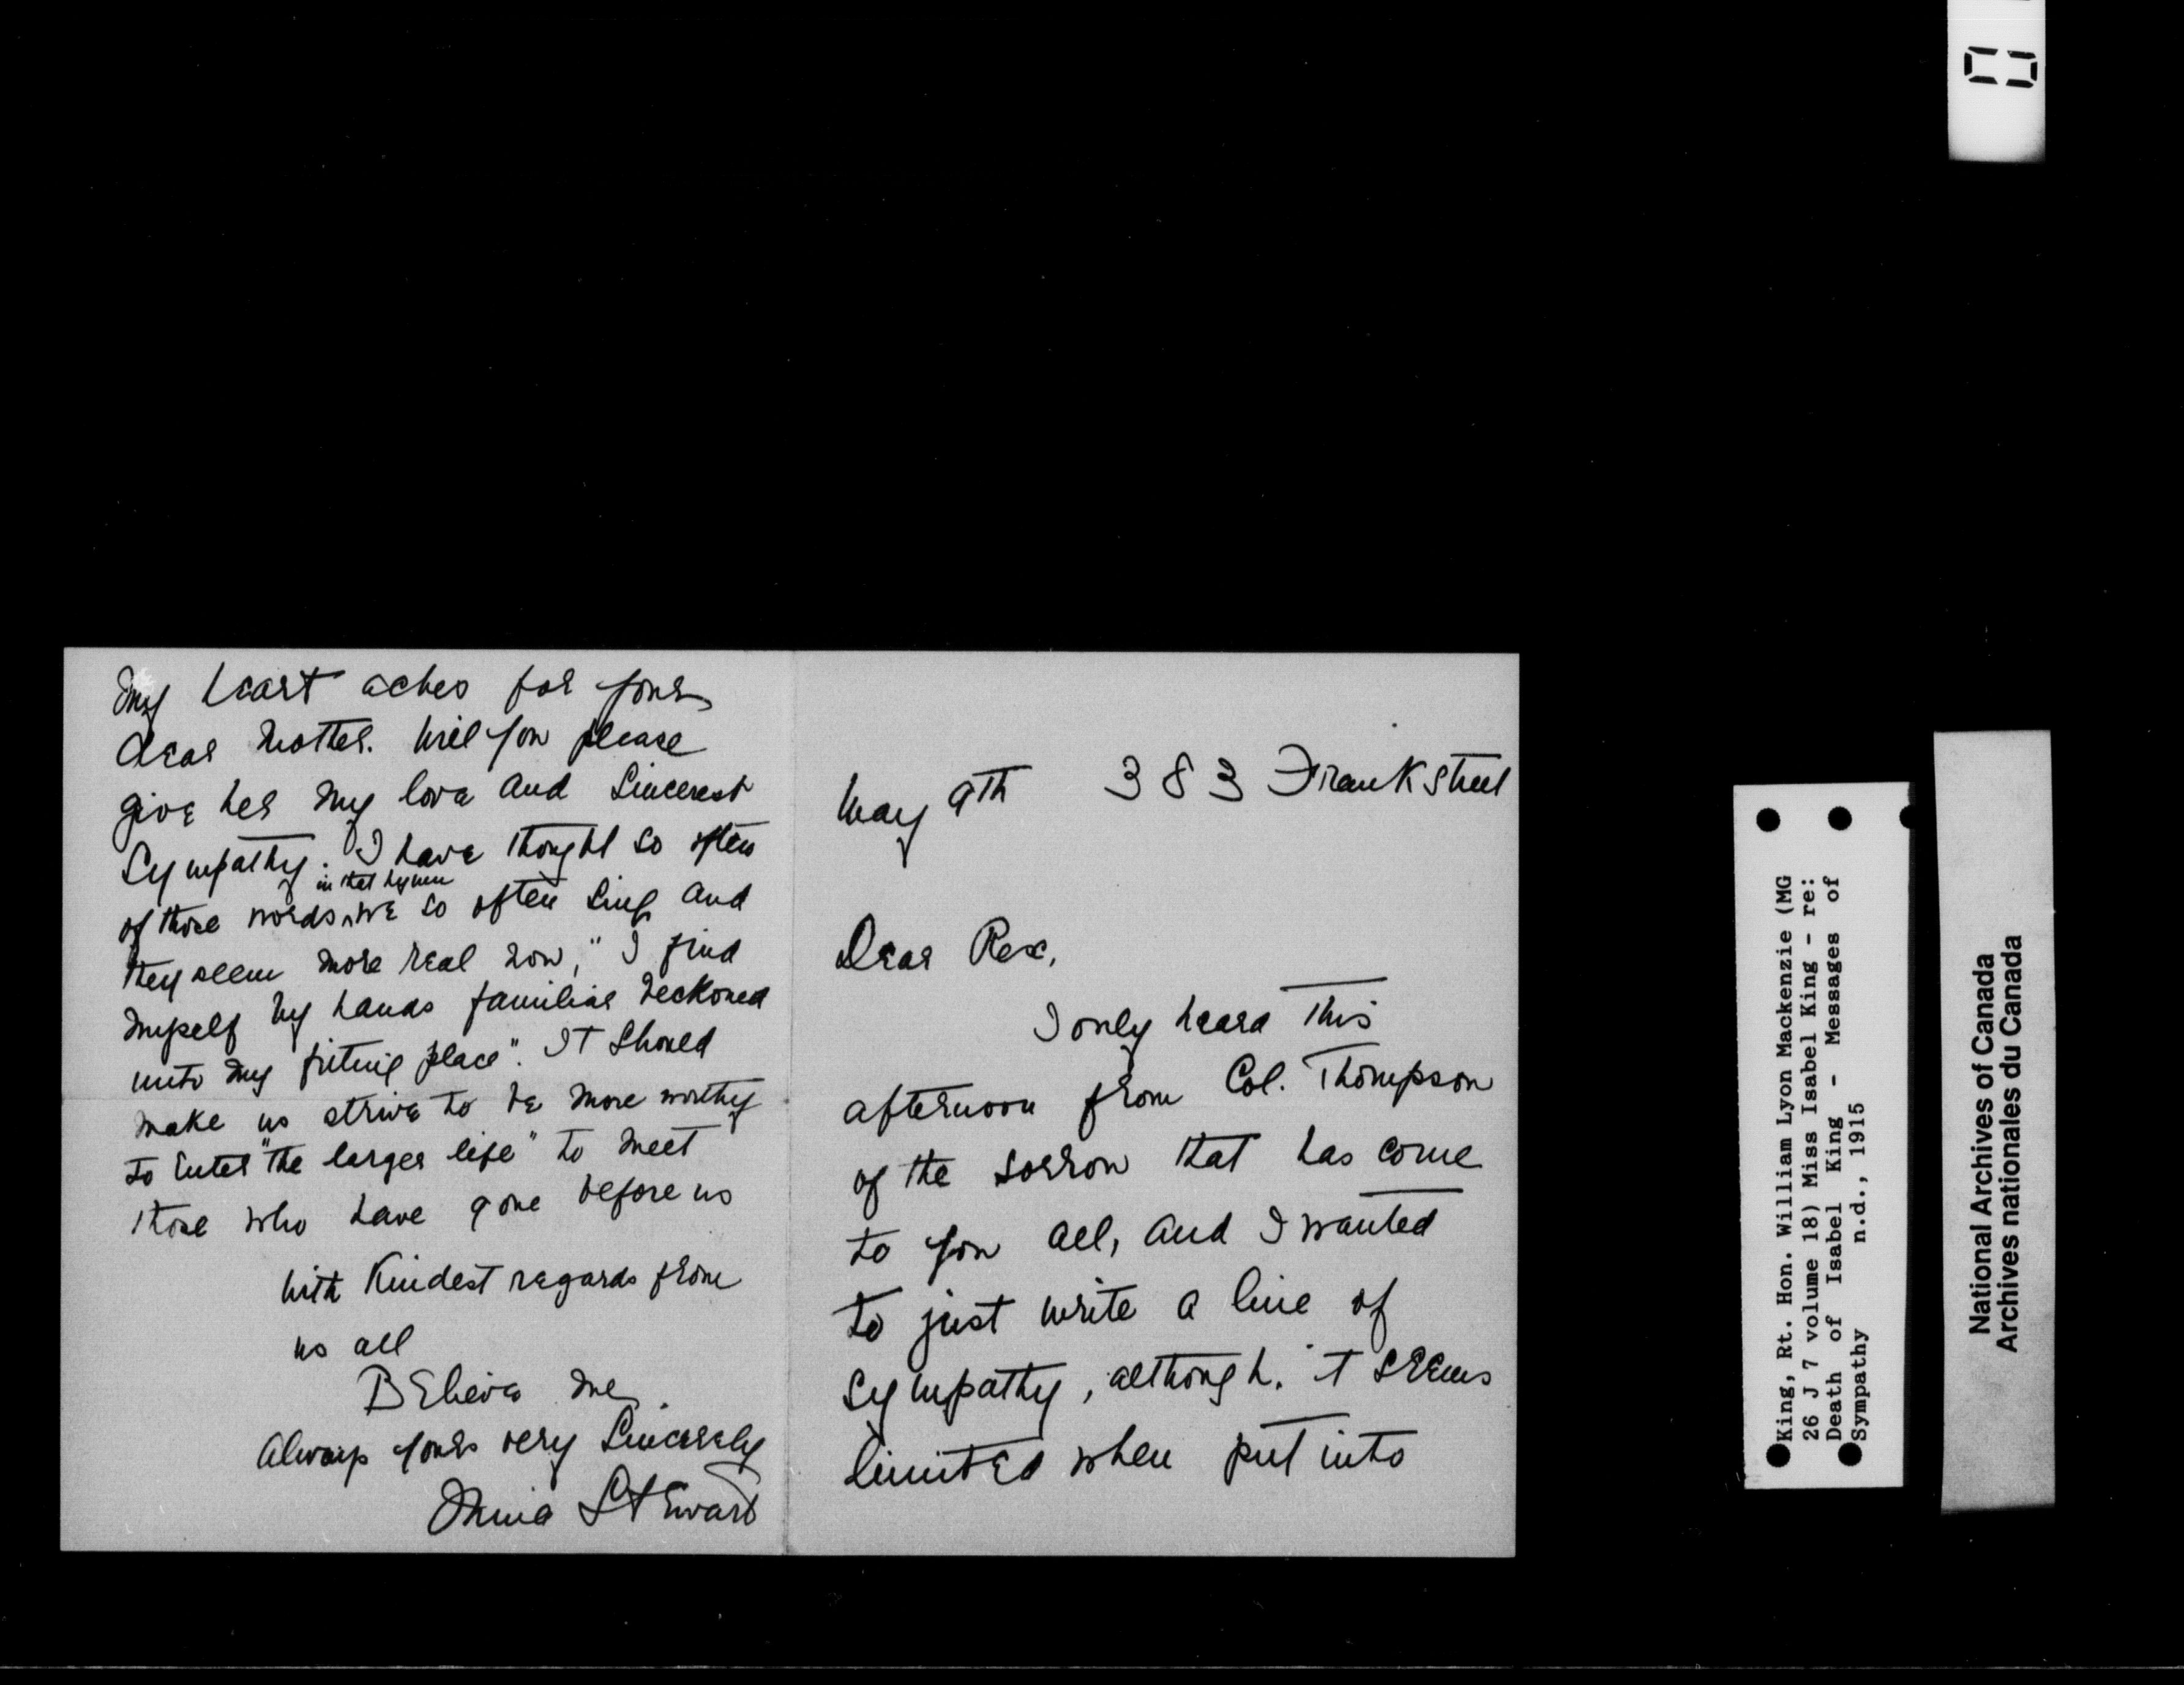 May 9th 383 Frank Street
Dear Rex,
I only heard this
afternoon from Col. Thompson
of the sorrow that has come
to you all, and I wanted
to just write a line of
sympathy, although it seems
limited when put into
My heart aches for your
dear Mother. Will you please
give her my love and sincerest
sympathy. I have thought so often
in that hymn
of those words we so often sing and
they seem more real now, "I find
myself by hands familiar beckoned
unto my fitting place". It should
make us strive to be more worthy
to enter "the larger life" to meet
those who have gone before us
With kindest regards from
us all
Believe me
Always yours very sincerely
Stewart
King, Rt. Hon. William Lyon Mackenzie (MG
26 J 7 volume 18) Miss Isabel King - re:
Death of Isabel King - Messages of
Sympathy n.d., 1915
National Archives of Canada
Archives nationales du Canada